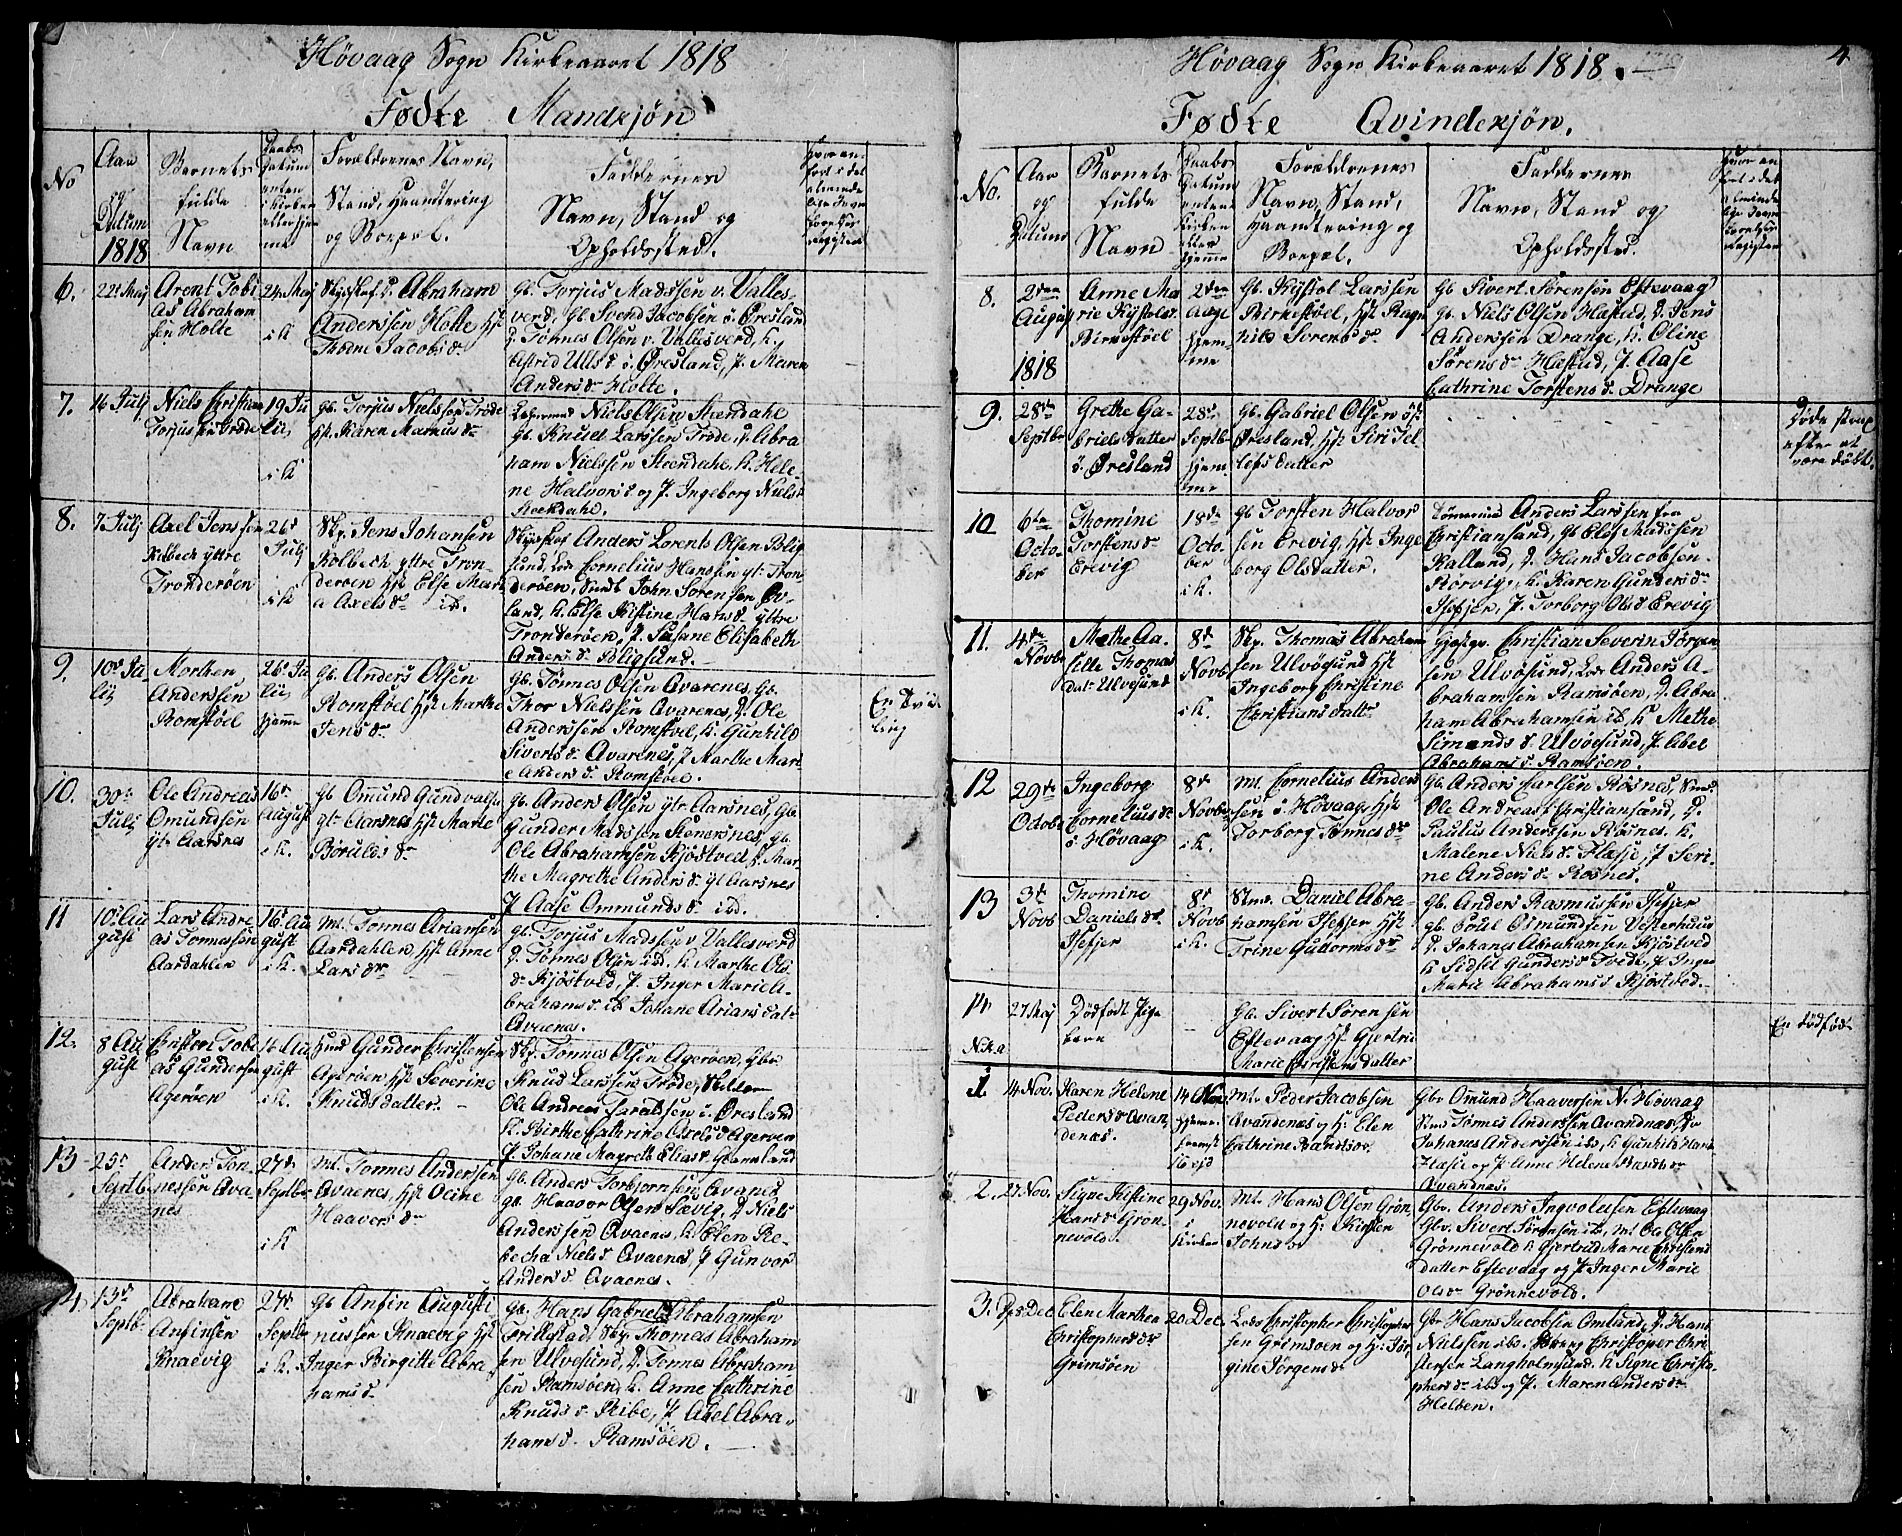 Høvaag Sogn Kirkeaaret 1818
Fødte Mandkjøn
No
Aar
og
Datum
1818
Barnets
fulde
Navn
Daabs
Datum
enten
i Kirken
eller hjem
me
Forældrenes Navn,
Stand, Haandtering
og Boepæl.
Faddernes
Navn, Stand og
Opholdssted.
6.
22de Maj
Arent Tobi
as Abraham
sen Holte
24 Maj
i K
Abraham
Anderssen Holte hst
Thorine Jacobsdr
Gb. Torjus Madssen v. Valles-
verd, Gb Svend Jacobsen ø. Øresland
J. Tønnes Olsen v. Vallesverd, K.
Astrid Ullsd ø. Øresland, P. Maren
Andersdr Holte.
7.
16 Julj
Niels Christian
Torjussen Trøde
19 Ju
lij
i K
Gb. Torjus Nielssen Trøde
hst. Karen Markusdr
Niels Olsen Steendahl
Gb. Knud Larssen Trøde, J. Abra
ham Nielssen Steendahl, K. Hele-
ne Halvorsd og P. Ingeborg Nielsd
Steendahl.
8.
7 Julj
Axel Jenssen
Kolbech yttre
Trønderøen
26d
Julj
i K
Skp. Jens Johansen
Kolbech yttre Trøn-
derøen hst Else Mari
a Axelsdr ib.
Anders Lorents Olsen Blig
sund, Lods Cornelius Hanssen yt. Trøn
derøen, John Sørensen Øv-
land, K. Else Kristine Hansd yttre
Trønderøen, P. Susane Elisabeth
Andersd. Bligsund.
9.
10d Ju
lij
Morthen
Anderssen
Romstøel
26d Ju
lij
hjemme
Gb. Anders Olsen
Romstøel hst Marthe
Jensdr
Gb. Tønnes Olsen Qvarenes, Gb.
Thor Nielssen Qvarenes, J. Ole
Anderssen Romstøel, K. Gunhild
Sivertsd. Qvarenes, P. Marthe Mari
e Andersd. Romstøel.
En Tvil
ling
10.
30d
Julj
Ole Andreas
Omundsen
yt. Aarsnes
16d
August
i K.
Gb Omund Gundvalds
yt. Aarsnes hst. Marie
Børuldsdr
Gb. Anders Olsen ytr Aarsnes, Gb.
Gunder Madssen Stenersnes, Gb.
Ole Abrahamsen Kjøstved K. Mar-
the Magrethe Andersd. yt Aarsnes
P Aase Ommundsd. ibd.
11
10d Au
gust
Lars Andre
as Tønnessen
Aardahlen
16d Au
gust
i K.
Mt. Tønnes Ariansen
Aardahlen hst. Anne
Larsdr
Gb. Torjus Madssen v. Vallesverd
J. Tønnes Olsen ibd. K Marthe Ols-
dr Kjøstved, P. Inger Marie A-
brahamsd. ib Johane Ariansdatr
Qvaenes.
12.
8 Au
gust
Tobi
as Gundersen
Agerøen
16 Au
gust
i K.
Gunder Christensen
Agerøen hst. Severine
Knudsdatter.
Skp. Tønnes Olsen Agerøen, Gbr
Knud Larssen Trøde,
Ole Andreas Taraldsen ø. Øresland
K. Birthe Cathrine Axelsd Agerøen
P. Johane Magrete Eliasdr Gammeland
13
25d
Septb
Anders Tøn
nessen Qva
nes
27d
Septbr
i K
Mt. Tønnes Andersen
Qvaenes, hst. Ocine
Haaversdr
Gb. Anders Torbjørnsen Qvanes
Gb. Haavor Olsen Sævig, J. Niels
Anderssen Qvaenes, K. Elen Re-
becha Nielsd. Qvaenes, P. Gunvor
Andersd. Qvaenes.
14
13d
Septb
Abraham
Anfinsen
Knaevig
27d
Septbr
i K.
Gb Anfin Augusti
nussen Knaevig hst
Inger Birgitte Abra
hamsd.
Gb. Hans Gabriel Abrahamsen
Trillestad, Skp. Thomas Abraham
sen Ulvøsund, J. Tønnes Abraham
sen Ramsøen, K. Anne Cathrine
Knudsd. Ribe, P. Abel Abra-
hamsd. Ramsøen.
Høvaag Sogn Kirkeaaret 1818.
4
Fødte Qvindekjøn.
No.
Aar
og
Datum
Barnets
fulde
Navn
Daabs
Datum
enten i
Kirken
eller
hjemme
Forældrenes
Navn, Stand,
Haandtering og
Boepæl.
Faddernes
Navn, Stand og
Opholdssted.
8.
2den
August
1818
Anne Ma
rie Kystolsd
Birkestøel
2den
Aug
hjem-
me
Gb Kystol Larssen
Birkestøel, hst. Ragn
hild Sørensdr.
Gb Sivert Sørensen Eftevaag
Gb. Niels Olsen Hæstad, J. Jens
Anderssen Drange, K. Oline
Sørensdr Hæstad, P. Aase
Cathrine Torstensd. Drange
9.
28de
Septbr
Grethe Ga-
brielsdatter
ø. Øresland
28d
Septbr
hjem-
me
Gb. Gabriel Olsen ø
Øresland, hst Siri Tel
lefsdatter
Døde strax
efter at
være døbt.
10
6te
Octo-
ber
Thomine
Torstensdr
Erevig
18de
Octo-
ber
i K.
Gb Torsten Halvor
sen Erevig, hst Inge
borg Olsdatter.
Anders Larssen fra
Christiansand, Gb Elef Madssen
Kalland, J. Hans Jacobsen
Kørvig, K. Karen Gundersdr
Isefjær, P. Torborg Olsd Erevig
11.
4de
Novbr
Methe Aa-
selle Thomas
datr Ulvøsund
8d
Novb
i K.
Skp. Thomas Abraham
sen Ulvøsund hst
Ingeborg Christine
Christiansdattr
Christian Severin Jørgen
sen Ulvøsund, Lods Anders A-
brahamsen Ramsøen, J. Abra
ham Abrahamsen ib, K Methe
Simonds d. Ulvøesund, P. Abel
Abrahamsd. Ramsøen.
12
29de
Octobr
Ingeborg
Corneliusdr
ø. Høvaag
8d
Novbr
i K.
Mt. Cornelius Anders
sen ø. Høvaag, hst
Torborg Tønnesdr
Gb. Anders Carlsen Røsnes,
Ole Andreas i Christiansand, J.
Paulus Anderssen Røsnes. K.
Malene Nielsd. Flæsje, P. Seri-
ne Andersd. Røsnes.
13
3d
Novb
Thomine
Danielsdr
Isefjer
8d
Novb
i K.
Daniel Abra-
hamsen Isefjer hst
Trine Guttormsdr
Gb. Anders Rasmussen Isefjer
Gb. Poul Osmundsen Vesterhuus
J. Johanes Abrahamsen Kjøstved
K Sidsel Gundersd. Tvede, P Inger
Marie Abrahamsd. Kjøstved.
14
27 Maj
Dødfødt Pige
barn
Gb. Sivert Sørenssen
Eftevaag hst Gjertru
Marie Christensdatter
En dødfødt
1
14 Nov.
Karen Helene
Pedersdr Qvan
denæs.
14 Nov
hjeme
16 ejd
Mt. Peder Jacobsen
Qvandenæs og H: Elen
Cathrine
Gbr Omund Haaversen N. Høvaag
Tønnes Anderssen Qvandnæs Dr
Johanes Anderssen ibd, K Gunhild Hans
Flæsie og P. Anne Helene
Qvandnæs.
2.
27 Nov.
Signe Kistine
Hansdr Grøn-
nevold.
29 Nov.
i
Kirken
Mt. Hans Olsen Grøn
nevold og H: Kirsten
Johnsdr
Gbr. Anders Ingvoldsen Eftevaag
Gbr. Sivert Sørensen ib, Mt. Ole Olsen
Grønnevold K Gjertrud Marie Christens
datter Eftevaag og P. Inger Marie
Olsdr Grønnevold.
3.
5 Dec
Elen Marthea
Christophersdr
Grimsøen
20 Dec.
Lods Christopher Christopher
sen Grimsøen og H: Jør
gine Jørgensdr
Gbr Hans Jacobsen Omlund, J. Hans
Nielssen ibd. Christoper Chri-
stersen Langholmsund. K Signe Christo-
phersdr ibd og P. Maren Andersdr
Helden.